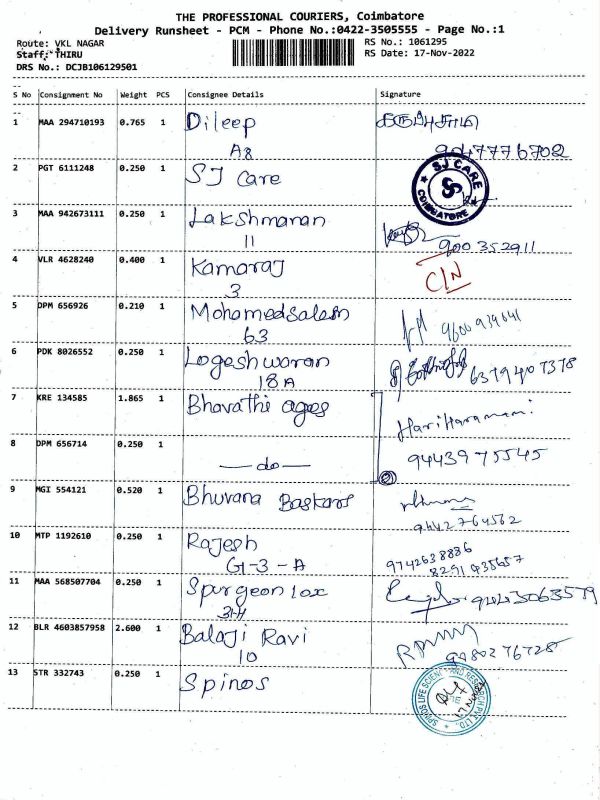 THE PROFESSIONAL COURIERS, Coimbatore
Delivery Runsheet - PCM - Phone No.:0422-3505555 - Page No.:1
Route: VKL NAGAR RS No.: 1061295
Staff: THIRU RS Date: 17-Nov-2022
DRS No.: DCJB106129501
S No Consignment No Weight PCS Consignee Details Signature
1 MAA 294710193 0.765 1 Dileep
A8
2 PGT 6111248 0.250 1 SJ Care SJ CARE
COIMBATORE
3 MAA 942673111 0.250 1 Lakshmanan
11 900352911
4 VLR 4628240 0.400 1 Kamaraj
3
5 DPM 656926 0.210 1 Mohamedsalem
63
6 PDK 8026552 0.250 1 Logeshwaran 6379407378
18A
7 KRE 134585 1.865 1 Bharathi
8 DPM 656714 0.250 1 —do— 9443975545
9 MGI 554121 0.520 1 Bhuvana
9442764562
10 MTP 1192610 0.250 1 Rajesh 9742638886
G-3-A
11 MAA 568507704 0.250 1 Spurgeon
12 BLR 4603857958 2.600 1 Balaji Ravi
10
13 STR 332743 0.250 1 Spinos